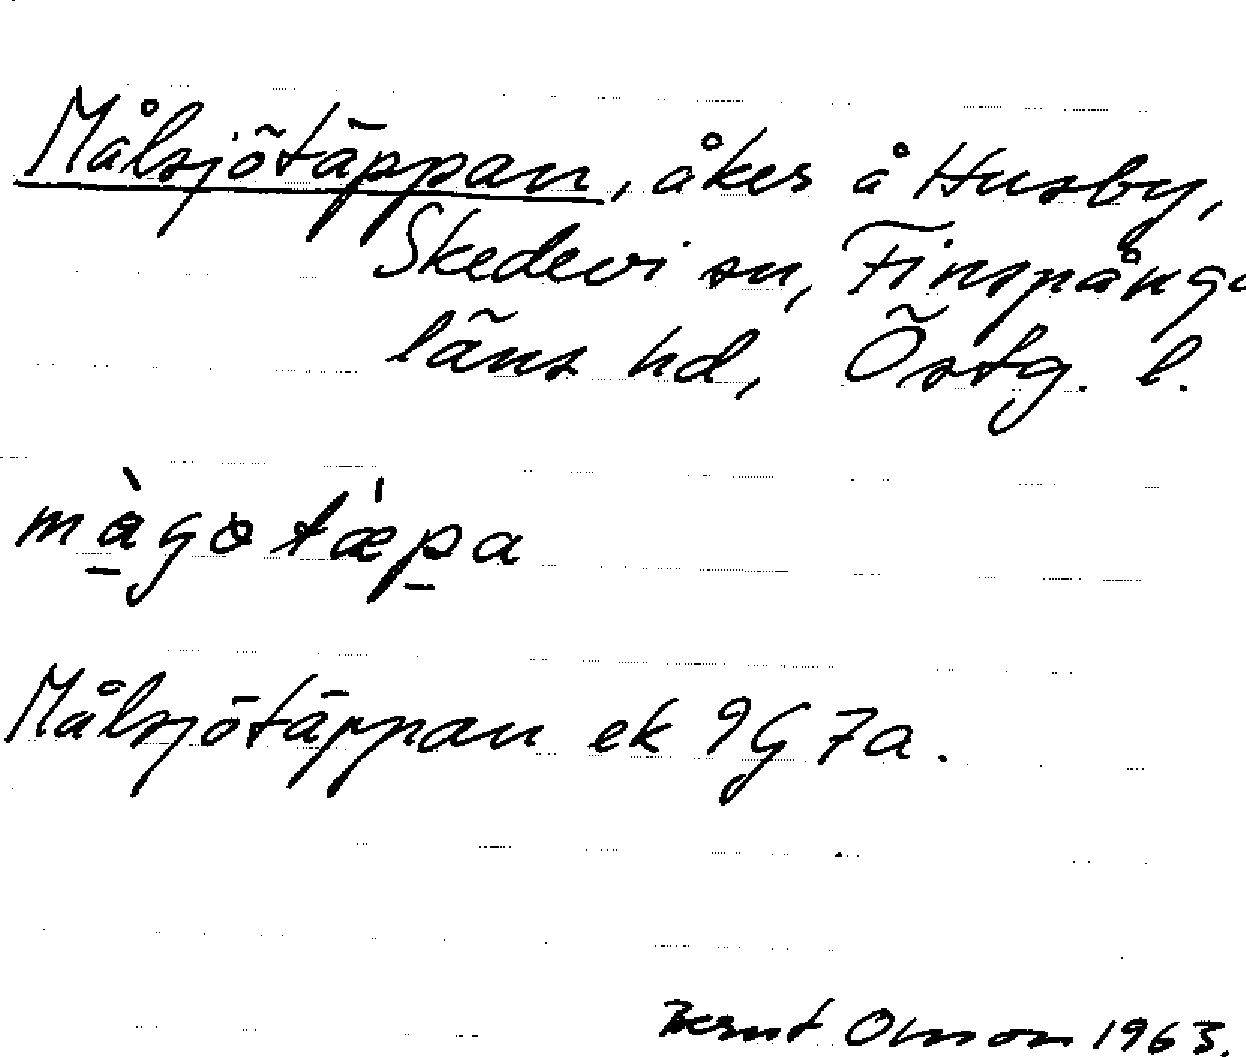 Målsjötäppan, åker å Husby,
Skedevi sn, Finspånga
läns hd, Östg. l.
Målsjötäppan ek 9G 7a.
Bernt Olsson 1963.